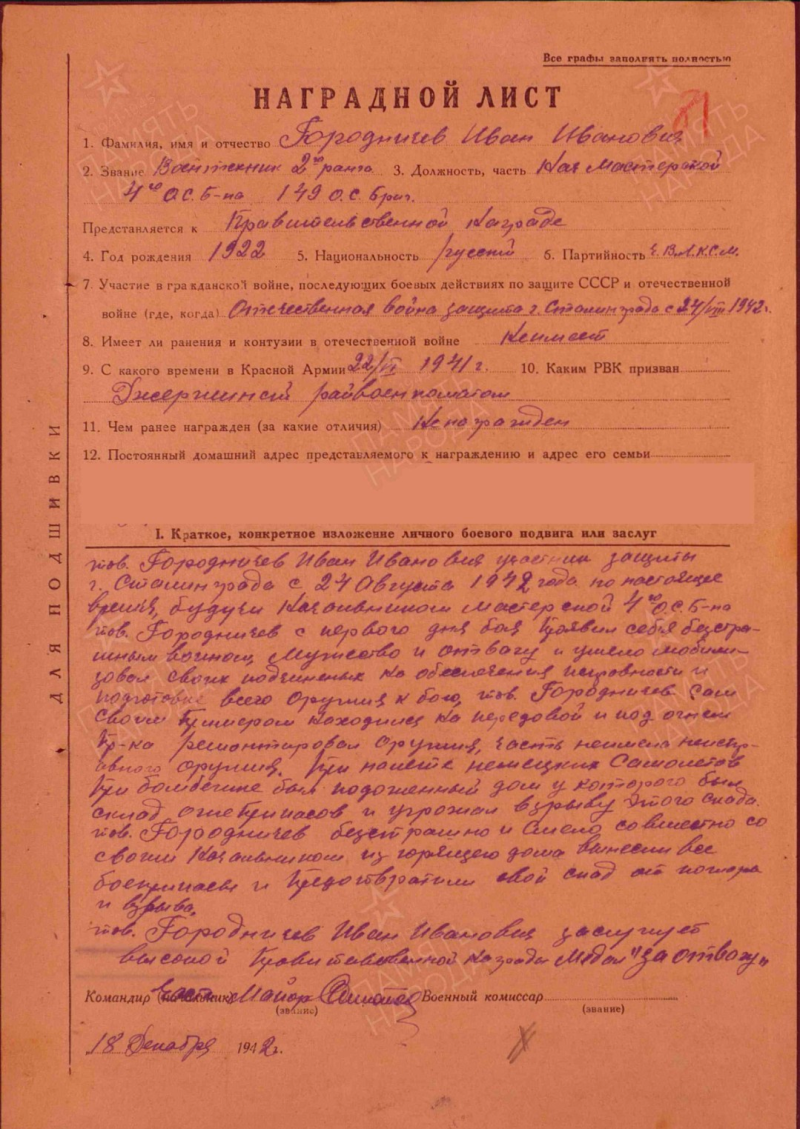 Все графы заполнить полностью
НАГРАДНОЙ ЛИСТ
1. Фамилия, имя и отчество Городничев Иван Иванович
2. Звание Воентехник 2го ранга 3. Должность, часть Нач Мастерской
4го О.С. Б-на 149 О.С. Бриг.
Представляется к Правительственной Награде
4. Год рождения 1922 5. Национальность русский 6. Партийность Ч. ВЛ.К.С.М.
7 Участие в гражданской войне, последующих боевых действиях по защите СССР и отечественной
войне (где, когда) Отечественная война защита г. Сталинграда с 24/VIII 1942г.
8. Имеет ли ранения и контузии в отечественной войне Неимеет
9. С какого времени в Красной Армии 22/VI 1941 г. 10. Каким РВК призван
райвоенкоматом
11. Чем ранее награжден (за какие отличия) Ненагражден
12. Постоянный домашний адрес представляемого к награждению и адрес его семьи
I. Краткое, конкретное изложение личного боевого подвига или заслуг
тов. Городничев Иван Иванович участник защиты
г. Сталинграда с 24 Августа 1942 года по настоящее
время, будучи Начальником мастерской 4го О.С. Б-на
тов. Городничев с первого дня боя проявил себя безстра-
шным воином, мужество и отвагу и умело мобили-
зовал своих на обеспечения исправности и
подготовке всего оружия к бою, тов. Городничев сам
своим примером находился на передовой и под огнем
пр-ка ремонтировал оружия, часть неисправ-
вного оружия. При налете немецких самолетов
при бомбежке был подоженный дом у которого был
склад огнеприпасов и угрожал взрыву этого склада.
тов. Городничев безстрашно и смело совместно со
своим Начальником из горящего дома вынесли все
боеприпасы и предотвратили свой склад от пожара
и взрыва.
тов. Городничев Иван Иванович заслуживает
высокой Правительственной награды Медали "За отвагу"
Командир (начальник) Майор Военный комиссар
(звание) (звание)
18 Декабря 1942г.
ДЛЯ ПОДШИВКИ
ПАМЯТЬ НАРОДА